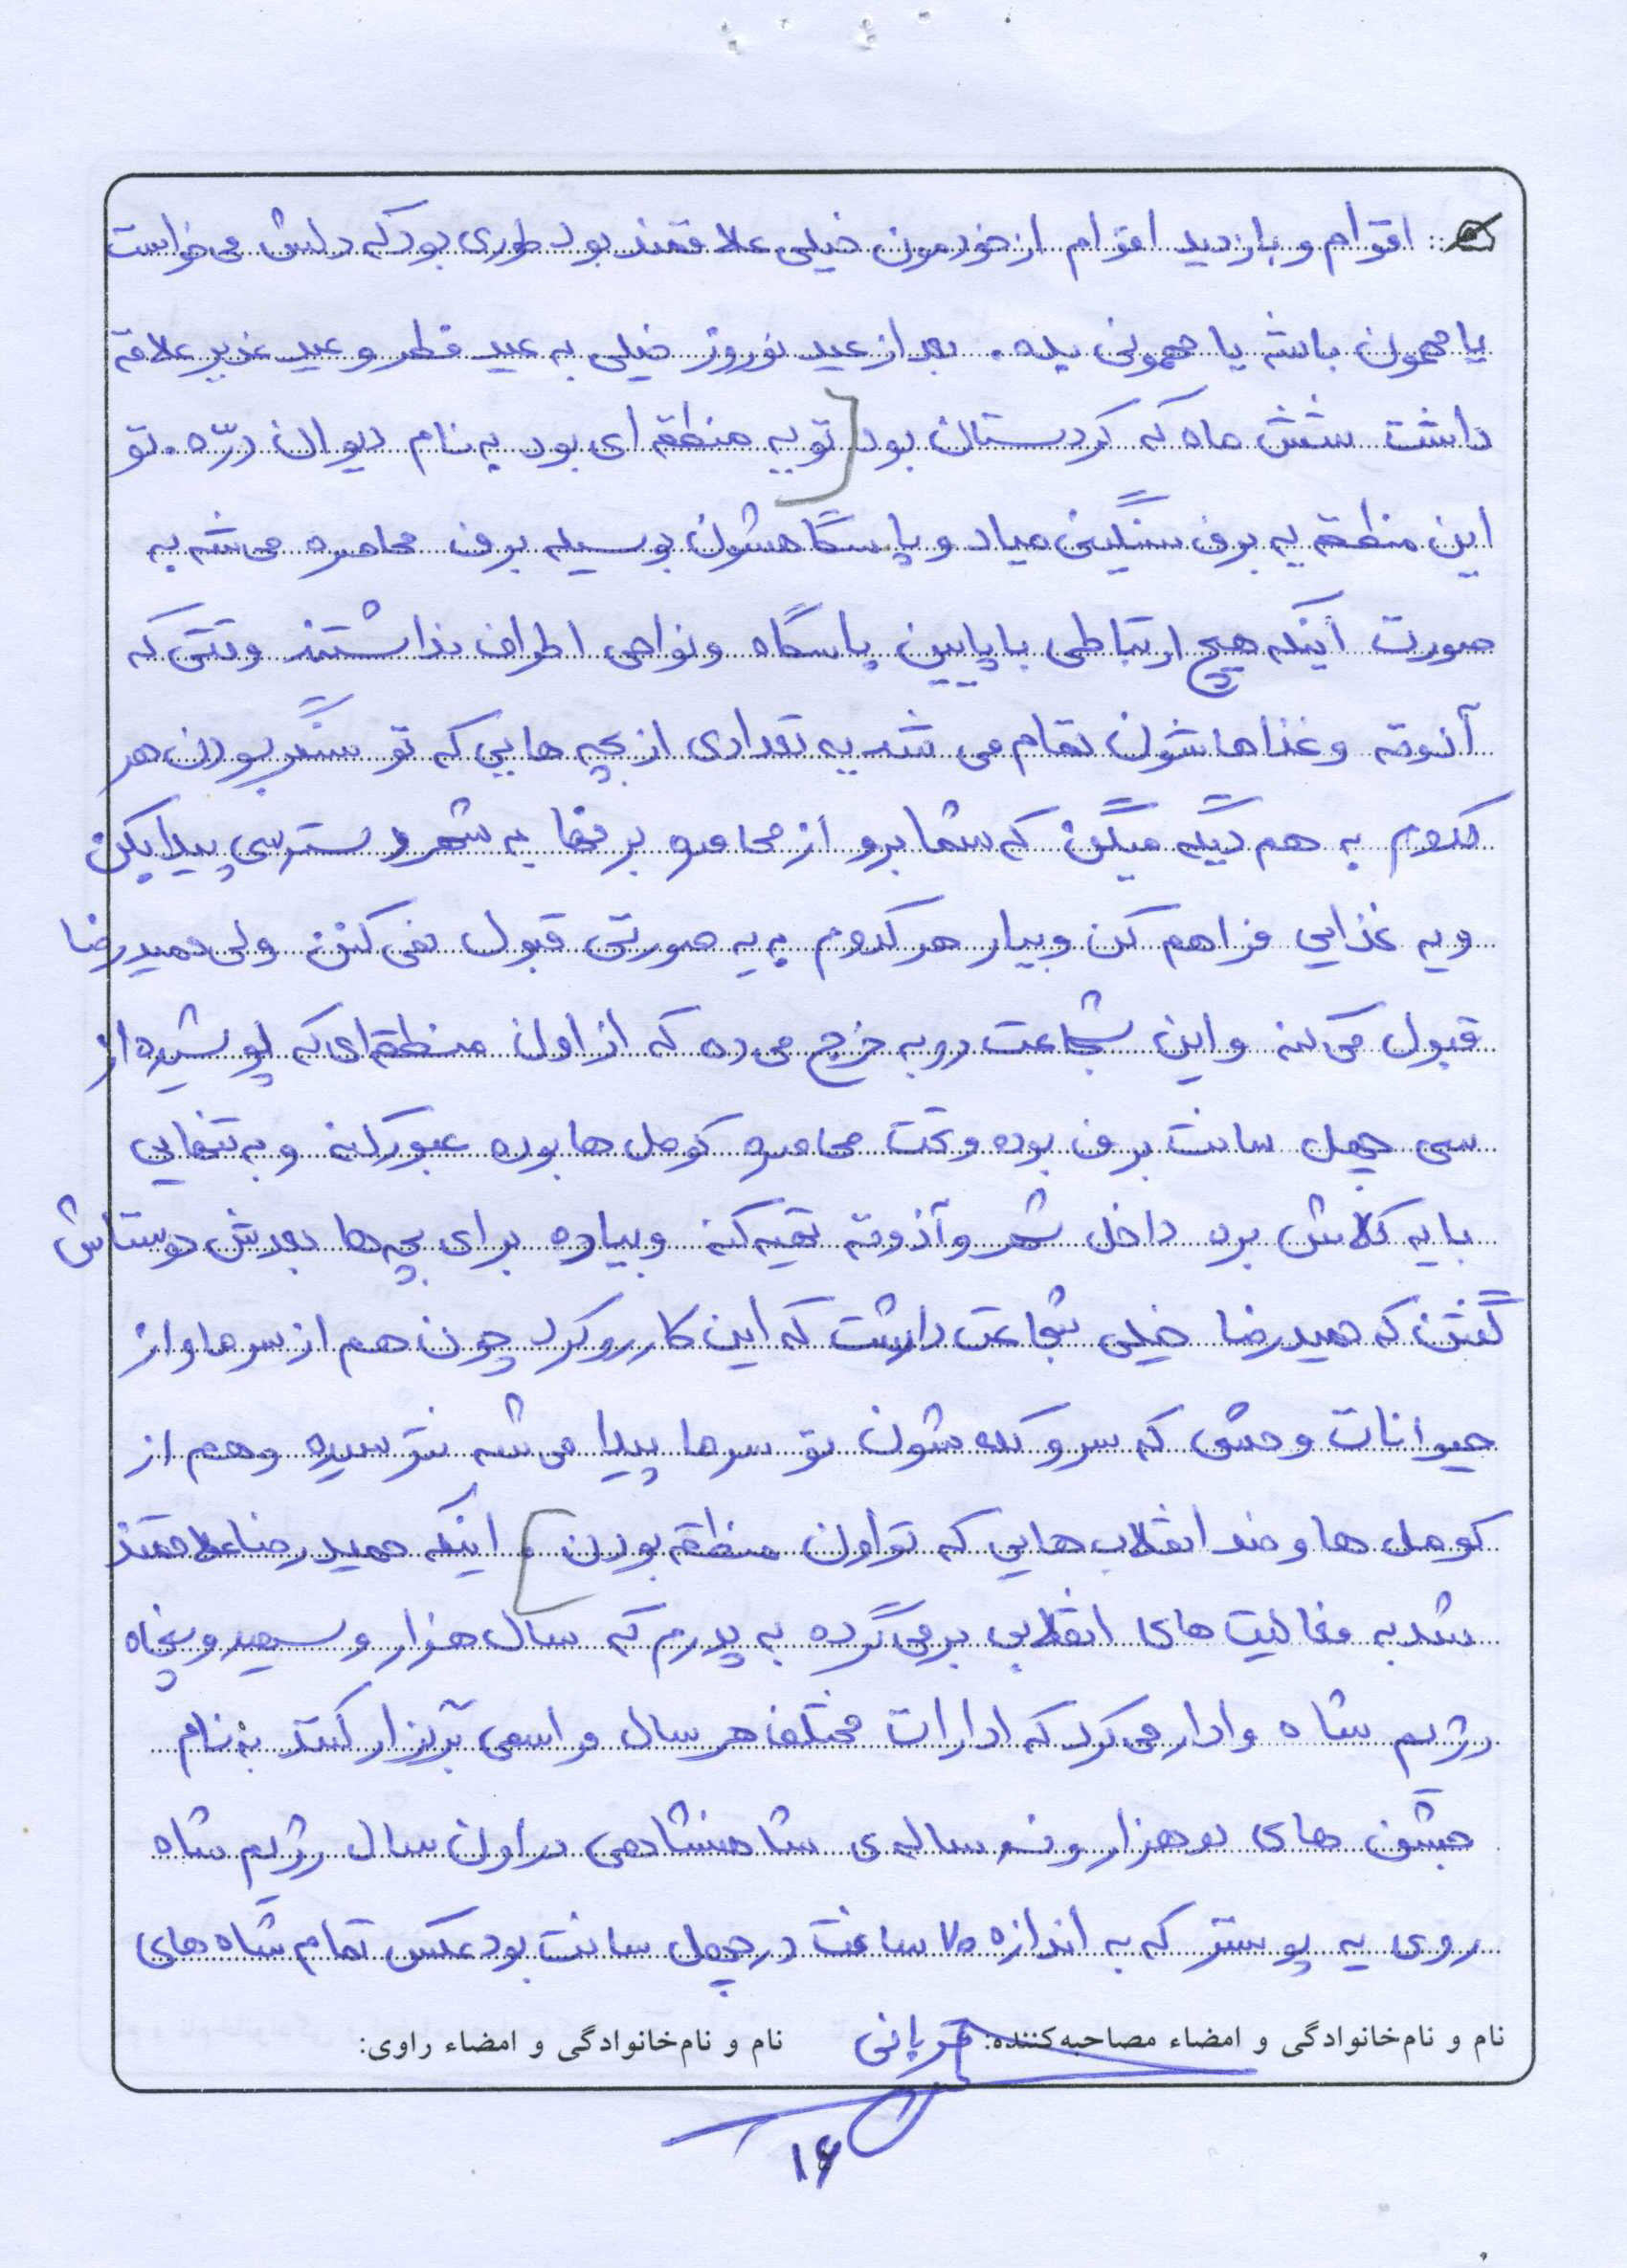 اقوام و بازدید اقوام از خودمون خیلی علاقمند بود طوری بود که دلش می خواست
یا مهمون باشه یا مهمونی بده. بعد از عید نوروز خیلی به عید فطر و عید غدیر علاقه
داشت شش ماه که کردستان بود [تو یه منطقه ای بود به نام دیوان درّه. تو
این منطقه یه برف سنگینی میاد و پاسگاهشون بوسیله برف محاصره می شه به
صورت اینکه هیچ ارتباطی با پایین پاسگاه و نواحی اطراف نداشتند وقتی که
آذوقه و غذاهاشون تمام می شه یه تعدادی از بچه هایی که تو سنگر بودن هر
کدوم به هم دیگه میگن که شما برو از محاصره برفها به شهر دسترسی پیدا بکن
و یه غذایی فراهم کن و بیار هر کدوم به یه صورتی قبول نمی کنن ولی حمیدرضا
قبول می کنه و این شجاعت رو به خرج می ده که از اون منطقه ای که پوشیده از
سی چهل سانت برف بوده و تحت محاصره کومل ها بوده عبور کنه و به تنهایی
با یه کلاش بره داخل شهر و آذوقه تهیه کنه و بیاره برای بچه ها بعدش دوستاش
گفتن که حمیدرضا خیلی شجاعت داشت که این کار رو کرد چون هم از سرما و از
حیوانات وحشی که سر و کله شون تو سرما پیدا می شه نترسیده و هم از
کومل ها و ضد انقلاب هایی که تو اون منطقه بودن] اینکه حمیدرضا علاقمند
شد به فعالیت های انقلابی برمی گرده به پدرم که سال هزار و سیصد و پنجاه
رژیم شاه وادار می کرد که ادارات مختلف هر سال مراسمی برگزار کنند به نام
جشن های دو هزار و پانصد ساله ی شاهنشاهی در اون سال رژیم شاه
روی یه پوستر که به اندازه ۷۰ سانت در چهل سانت بود عکس تمام شاه های
نام و نام‌خانوادگی و امضاء مصاحبه‌کننده: قربانی نام و نام‌خانوادگی و امضاء راوی:
۱۶